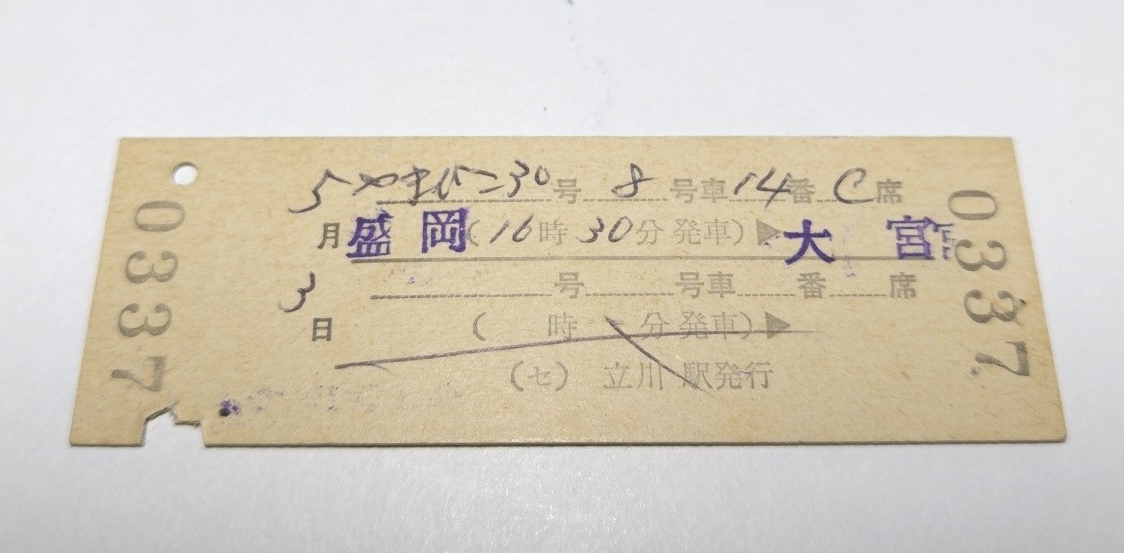 5 やまびこ30号 8号車14番C席
月 盛岡(16時30分発車)▶大宮
3 号 号車 番 席
日 ( 時 分発車)▶
(セ) 立川駅発行
0337
0337